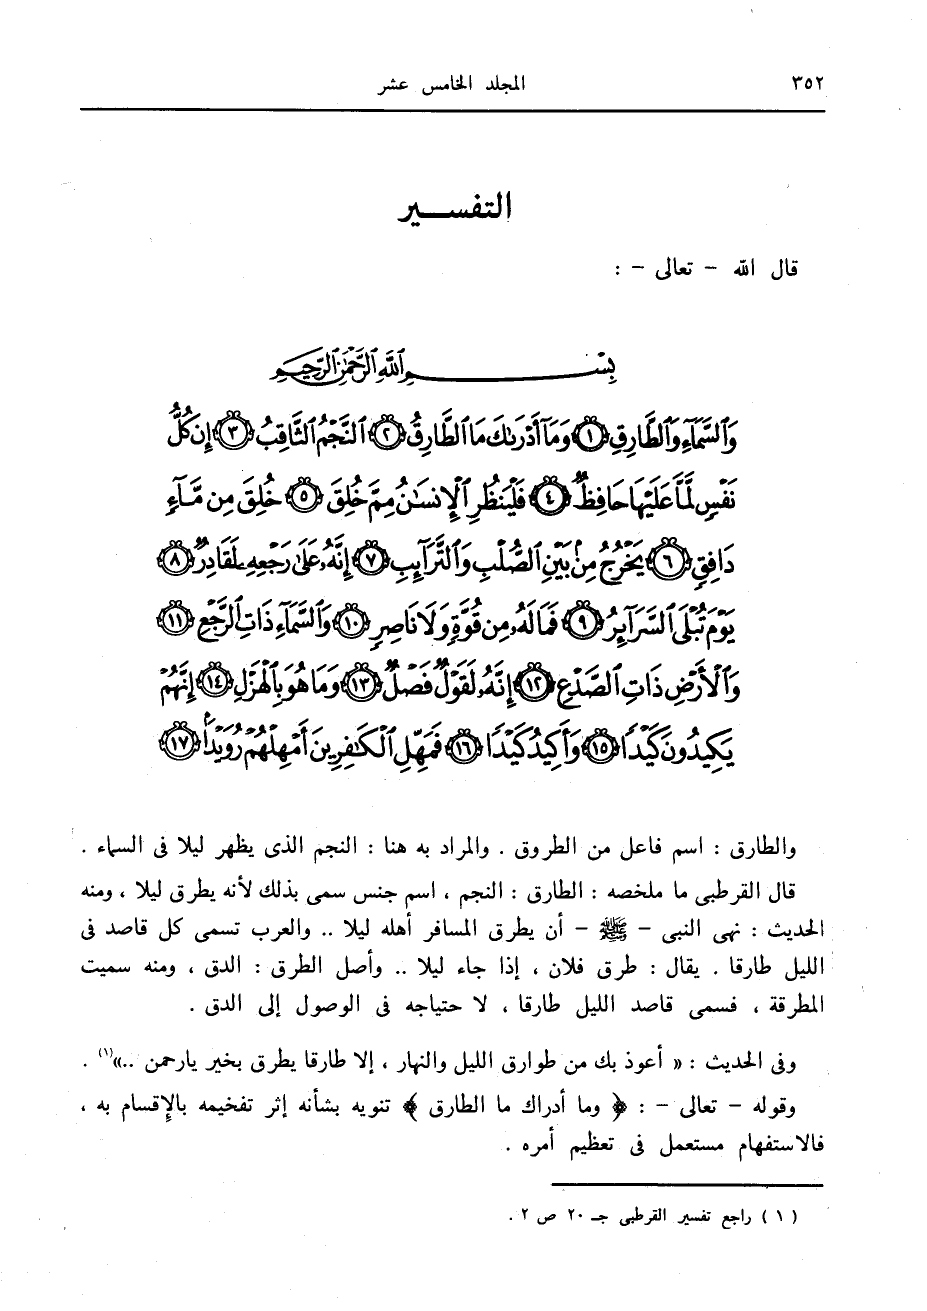 ٣٥٢ المجلد الخامس عشر
التفسير
قال الله – تعالى – :
بِسْمِ ٱللَّهِ ٱلرَّحْمَٰنِ ٱلرَّحِيمِ
وَٱلسَّمَآءِ وَٱلطَّارِقِ ١ وَمَآ أَدْرَىٰكَ مَا ٱلطَّارِقُ ٢ ٱلنَّجْمُ ٱلثَّاقِبُ ٣ إِن كُلُّ
نَفْسٍ لَّمَّا عَلَيْهَا حَافِظٌ ٤ فَلْيَنظُرِ ٱلْإِنسَٰنُ مِمَّ خُلِقَ ٥ خُلِقَ مِن مَّآءٍ
دَافِقٍ ٦ يَخْرُجُ مِنۢ بَيْنِ ٱلصُّلْبِ وَٱلتَّرَآئِبِ ٧ إِنَّهُۥ عَلَىٰ رَجْعِهِۦ لَقَادِرٌ ٨
يَوْمَ تُبْلَى ٱلسَّرَآئِرُ ٩ فَمَا لَهُۥ مِن قُوَّةٍ وَلَا نَاصِرٍ ١٠ وَٱلسَّمَآءِ ذَاتِ ٱلرَّجْعِ ١١
وَٱلْأَرْضِ ذَاتِ ٱلصَّدْعِ ١٢ إِنَّهُۥ لَقَوْلٌ فَصْلٌ ١٣ وَمَا هُوَ بِٱلْهَزْلِ ١٤ إِنَّهُمْ
يَكِيدُونَ كَيْدًا ١٥ وَأَكِيدُ كَيْدًا ١٦ فَمَهِّلِ ٱلْكَٰفِرِينَ أَمْهِلْهُمْ رُوَيْدًۢا ١٧
والطارق : اسم فاعل من الطروق . والمراد به هنا : النجم الذى يظهر ليلا فى السماء .
قال القرطبى ما ملخصه : الطارق : النجم ، اسم جنس سمى بذلك لأنه يطرق ليلا ، ومنه
الحديث : نهى النبى – ﷺ – أن يطرق المسافر أهله ليلا .. والعرب تسمى كل قاصد فى
الليل طارقا . يقال : طرق فلان ، إذا جاء ليلا .. وأصل الطرق : الدق ، ومنه سميت
المطرقة ، فسمى قاصد الليل طارقا ، لا حتياجه فى الوصول إلى الدق .
وفى الحديث : « أعوذ بك من طوارق الليل والنهار ، إلا طارقا يطرق بخير يارحمن ..»(١) .
وقوله – تعالى – : ﴿ وما أدراك ما الطارق ﴾ تنويه بشأنه إثر تفخيمه بالإقسام به ،
فالاستفهام مستعمل فى تعظيم أمره .
( ١ ) راجع تفسير القرطبى جـ ٢٠ ص ٢ .